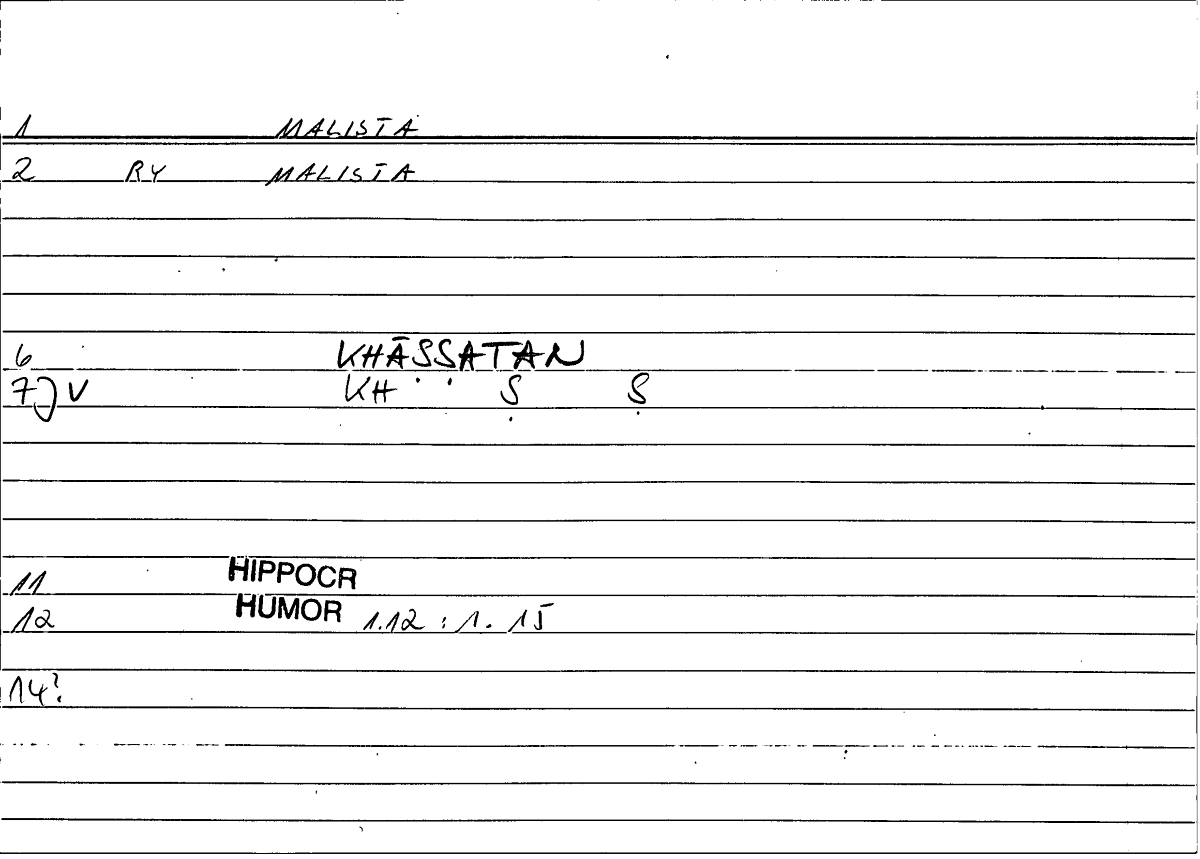 1 MALISTA
2 RY MALISTA
6 KHĀSSATAN
7) V KH . . Ṣ Ṣ
11 HIPPOCR
12 HUMOR 1.12 : 1. 15
14?